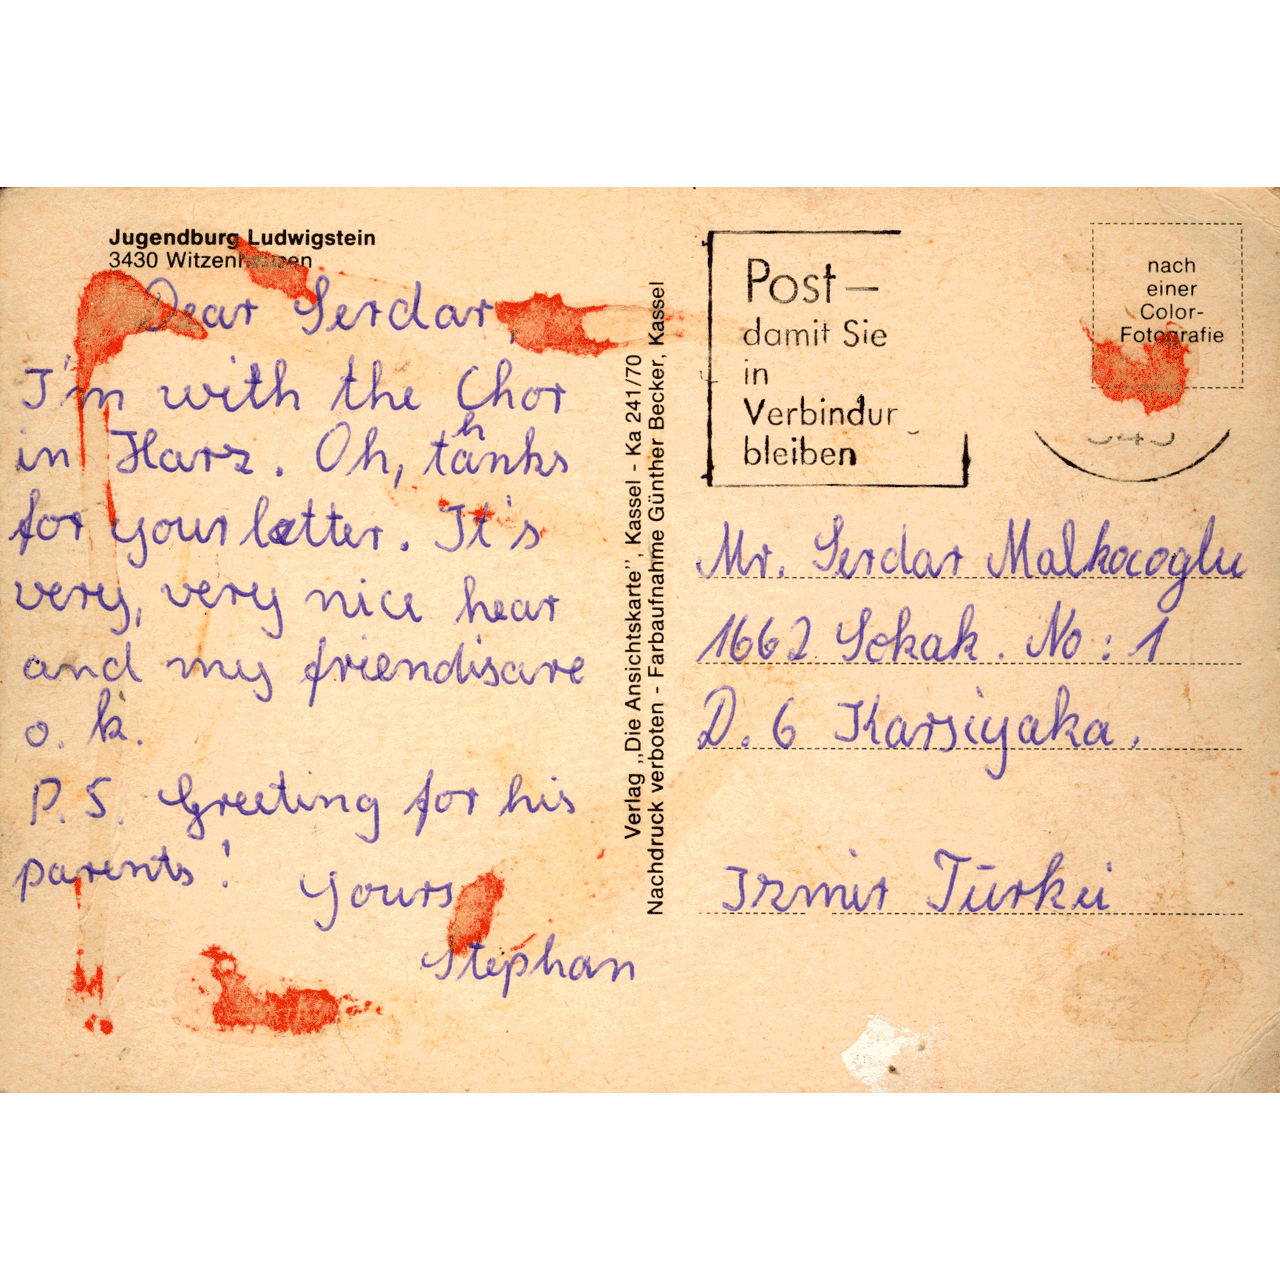 Jugendburg Ludwigstein
3430 Witzenhausen
Dear Serdar,
I'm with the Chor
in Harz. Oh, thanks
for your letter. It's
very, very nice hear
and my friendisare
o. k.
P. S. Greeting for his
parents!
Yours
Stephan
Verlag ,,Die Ansichtskarte", Kassel - Ka 241/70
Nachdruck verboten - Farbaufnahme Günther Becker, Kassel
Post –
damit Sie
in
Verbindun
bleiben
nach
einer
Color-
Fotografie
Mr. Serdar Malkocoglu
1662 Sokak. No : 1
D. 6 Karsiyaka.
Izmir Türkei